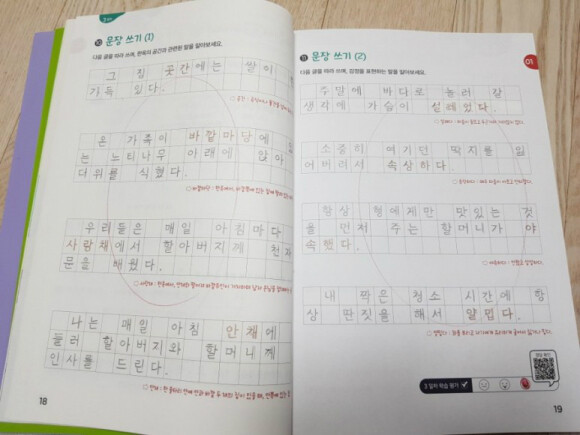 10 문장 쓰기 (1)
다음 글을 따라 쓰며, 한옥의 공간과 관련된 말을 알아보세요.
그 집 곳간에는 쌀이
가득 있다.
온 가족이 바깥마당에 있
는 느티나무 아래에 앉아
더위를 식혔다.
우리들은 매일 아침마다
사랑채에서 할아버지께 천자
문을 배웠다.
나는 매일 아침 안채에
들러 할아버지와 할머니께
인사를 드린다.
18
11 문장 쓰기 (2)
다음 글을 따라 쓰며, 감정을 표현하는 말을 알아보세요.
01
주말에 바다로 놀러 갈
생각에 가슴이 설레었다.
소중히 여기던 딱지를 잃
어버려서 속상하다.
항상 형에게만 맛있는 것
을 먼저 주는 할머니가 야
속했다.
내 짝은 청소 시간에 항
상 딴짓을 해서 얄밉다.
3일차 학습 평가
19